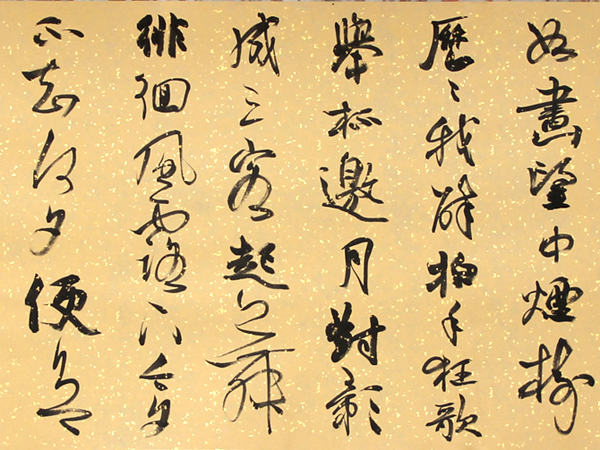 如畫望中煙樹
歷〻我醉拍手狂歌
舉杯邀月對影
成三客起舞
徘徊風露下今夕
不知何夕便欲